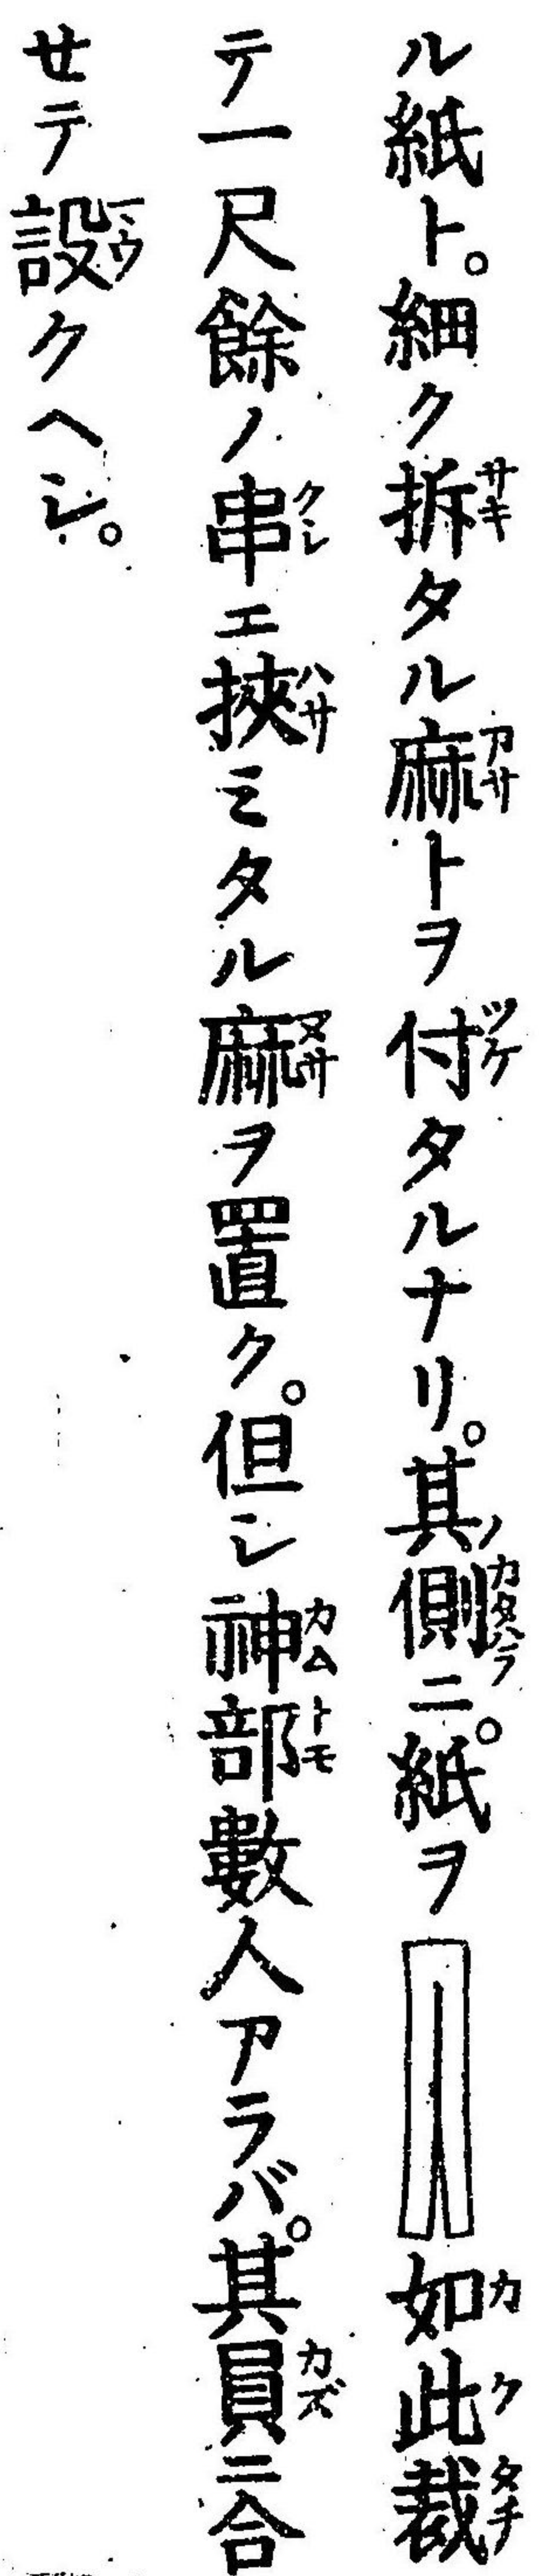 ル紙ト。細ク拆タル麻トヲ付タルナリ。其側ニ。紙ヲ如此裁
テ一尺餘ノ串エ挾ミタル麻ヲ置ク。但シ神部數人アラバ。其員ニ合
せテ設クヘシ。